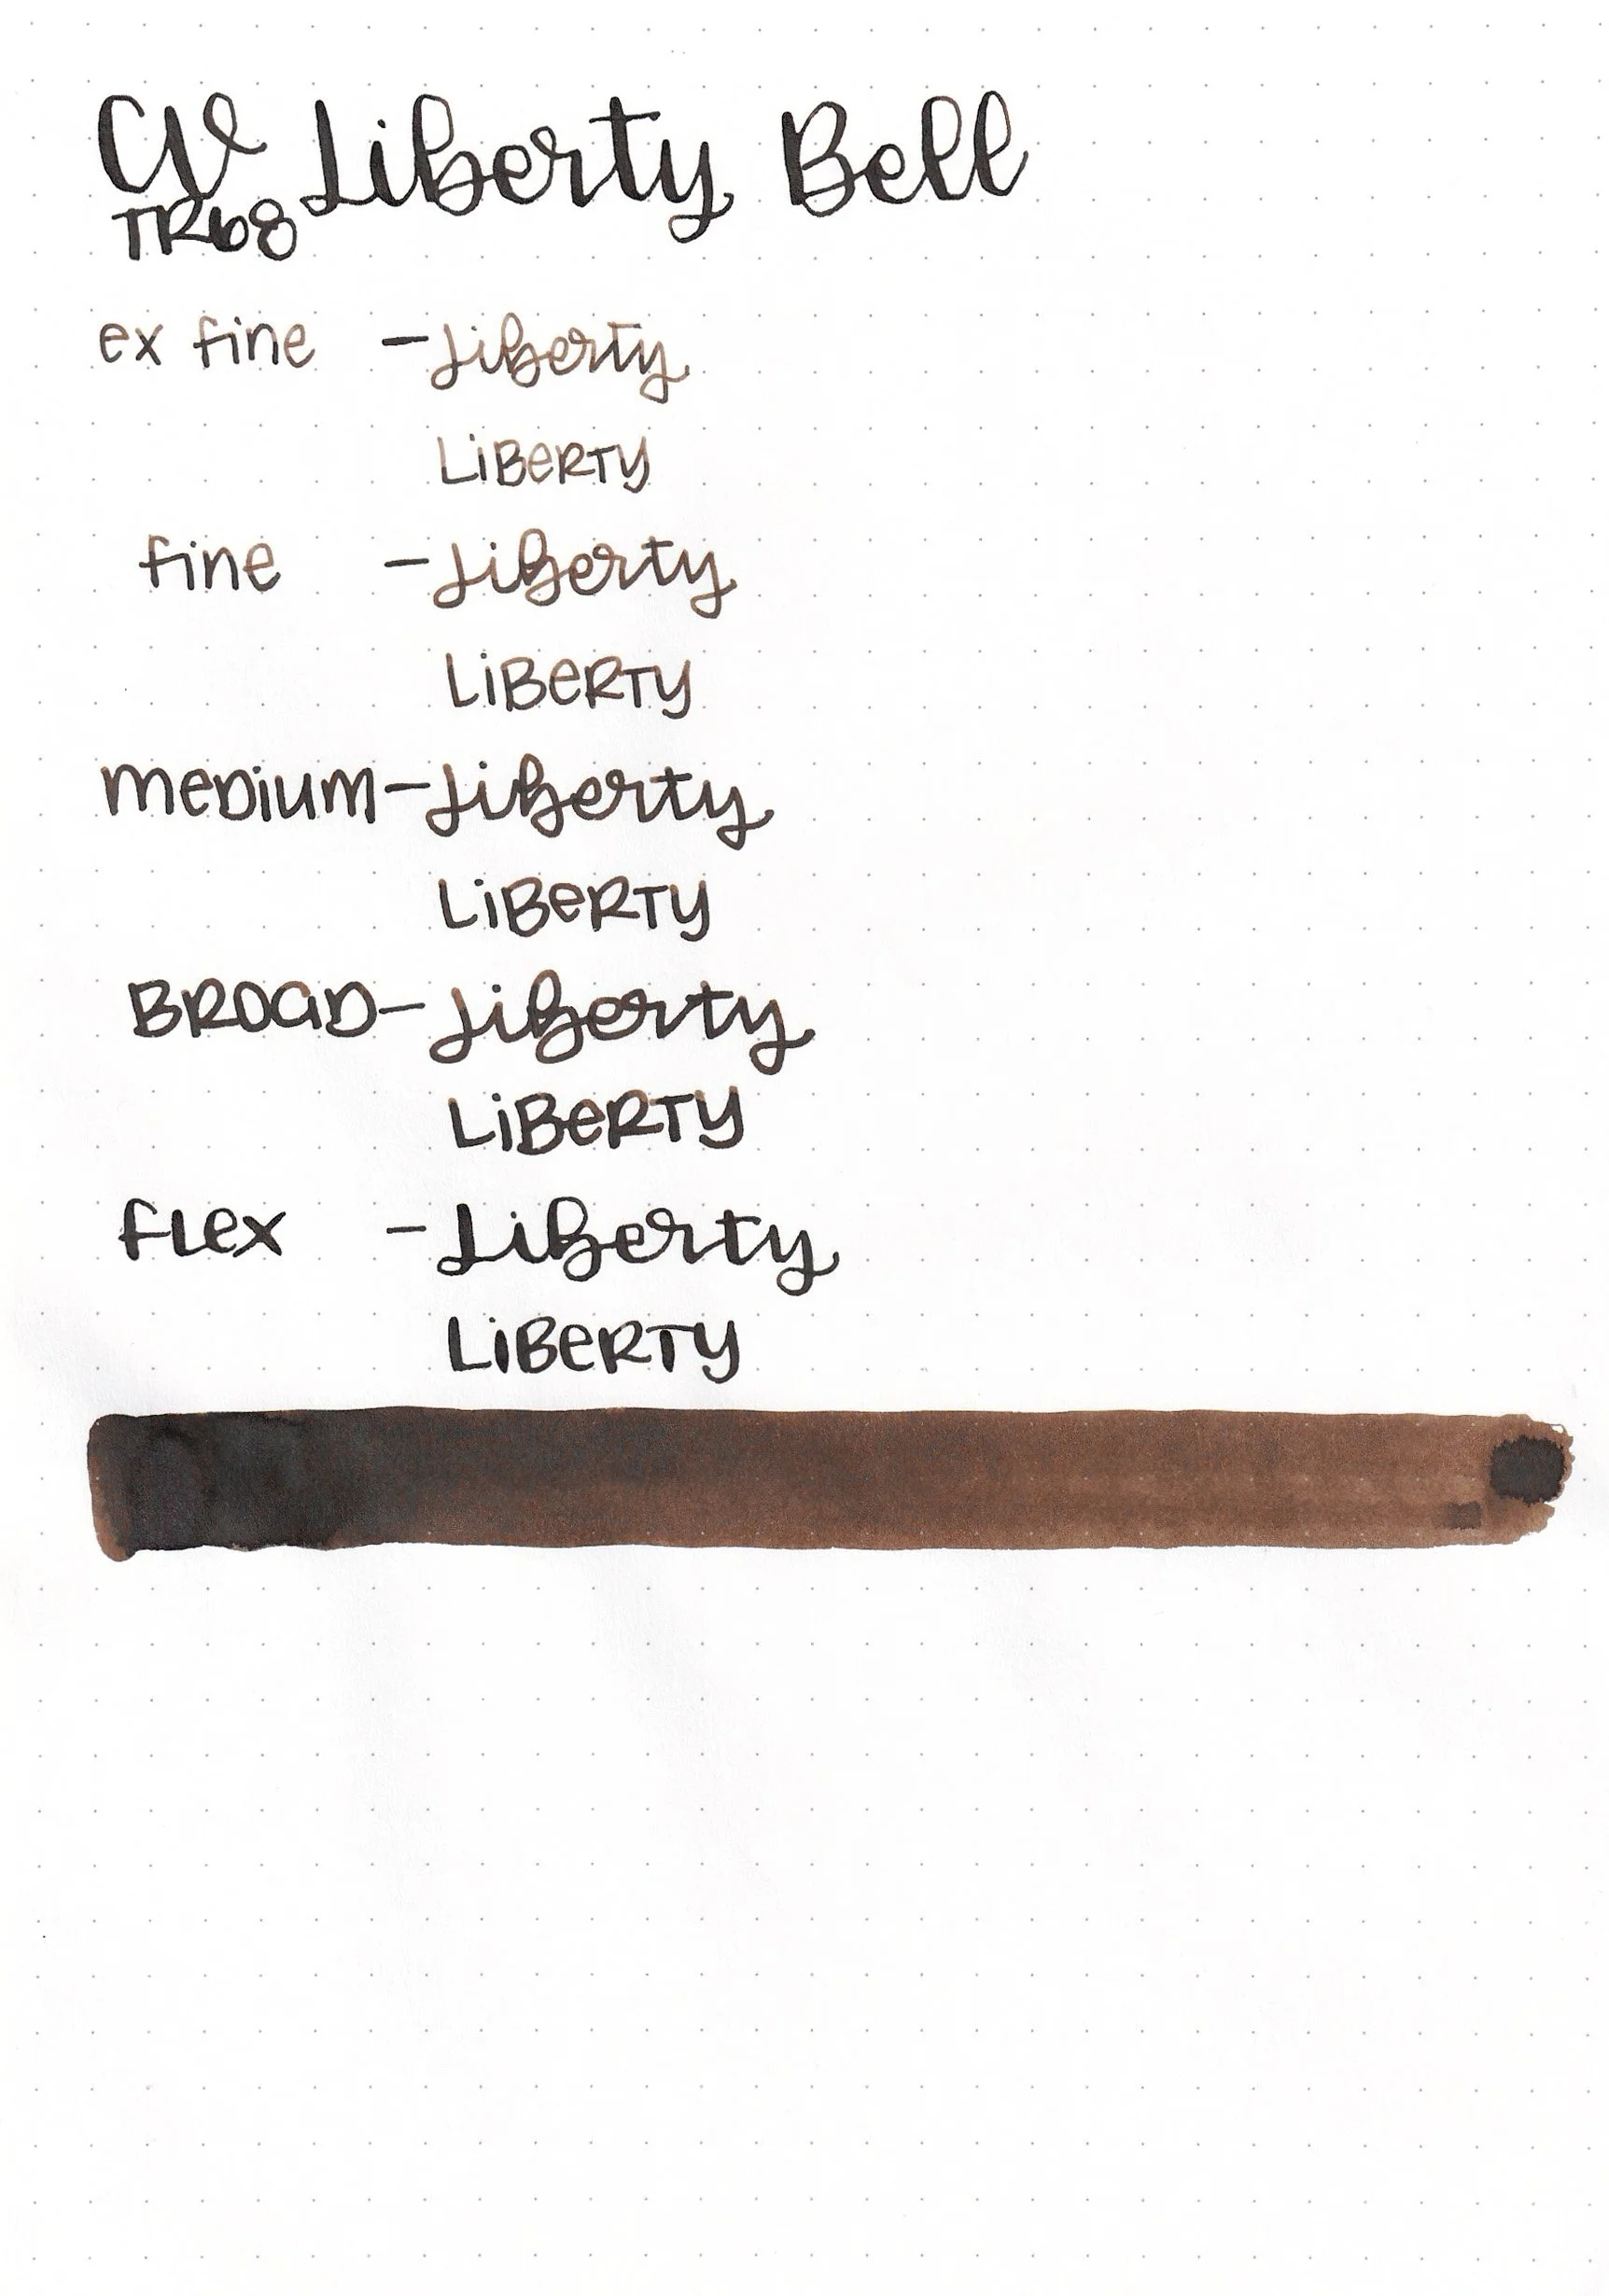 CV Liberty Bell
TR68
ex fine - Liberty
LiBeRTY
fine - Liberty
LiBeRTY
meDium - Liberty
LiBeRTY
BROaD - Liberty
LiBeRTY
fLex - Liberty
LiBeRTY